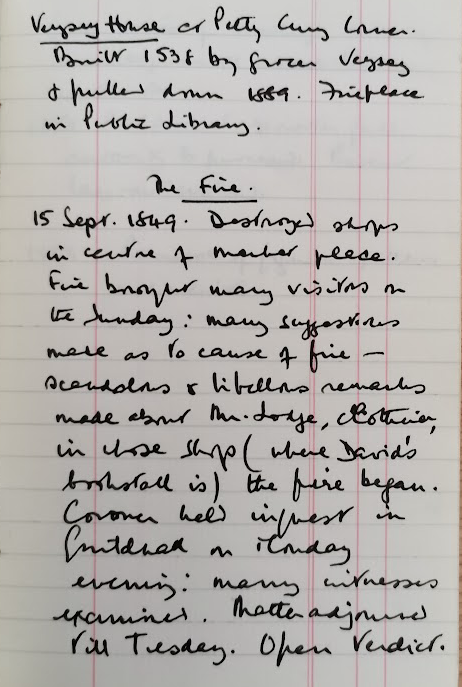 Veysey House at Petty Cury Corner.
Built 1538 by grocer Veysey
& pulled down 1889. Fireplace
in Public Library.
The Fire.
15 Sept. 1849. Destroyed shops
in centre of market place.
Fire brought many visitors on
the Sunday: many suggestions
made as to cause of fire –
scandalous & libellous remarks
made about Mr. Lodge, clothier,
in whose shop (where David's
bookstall is) the fire began.
Coroner held inquest in
Guildhall on Monday
evening: many witnesses
examined. Matter adjourned
till Tuesday. Open Verdict.